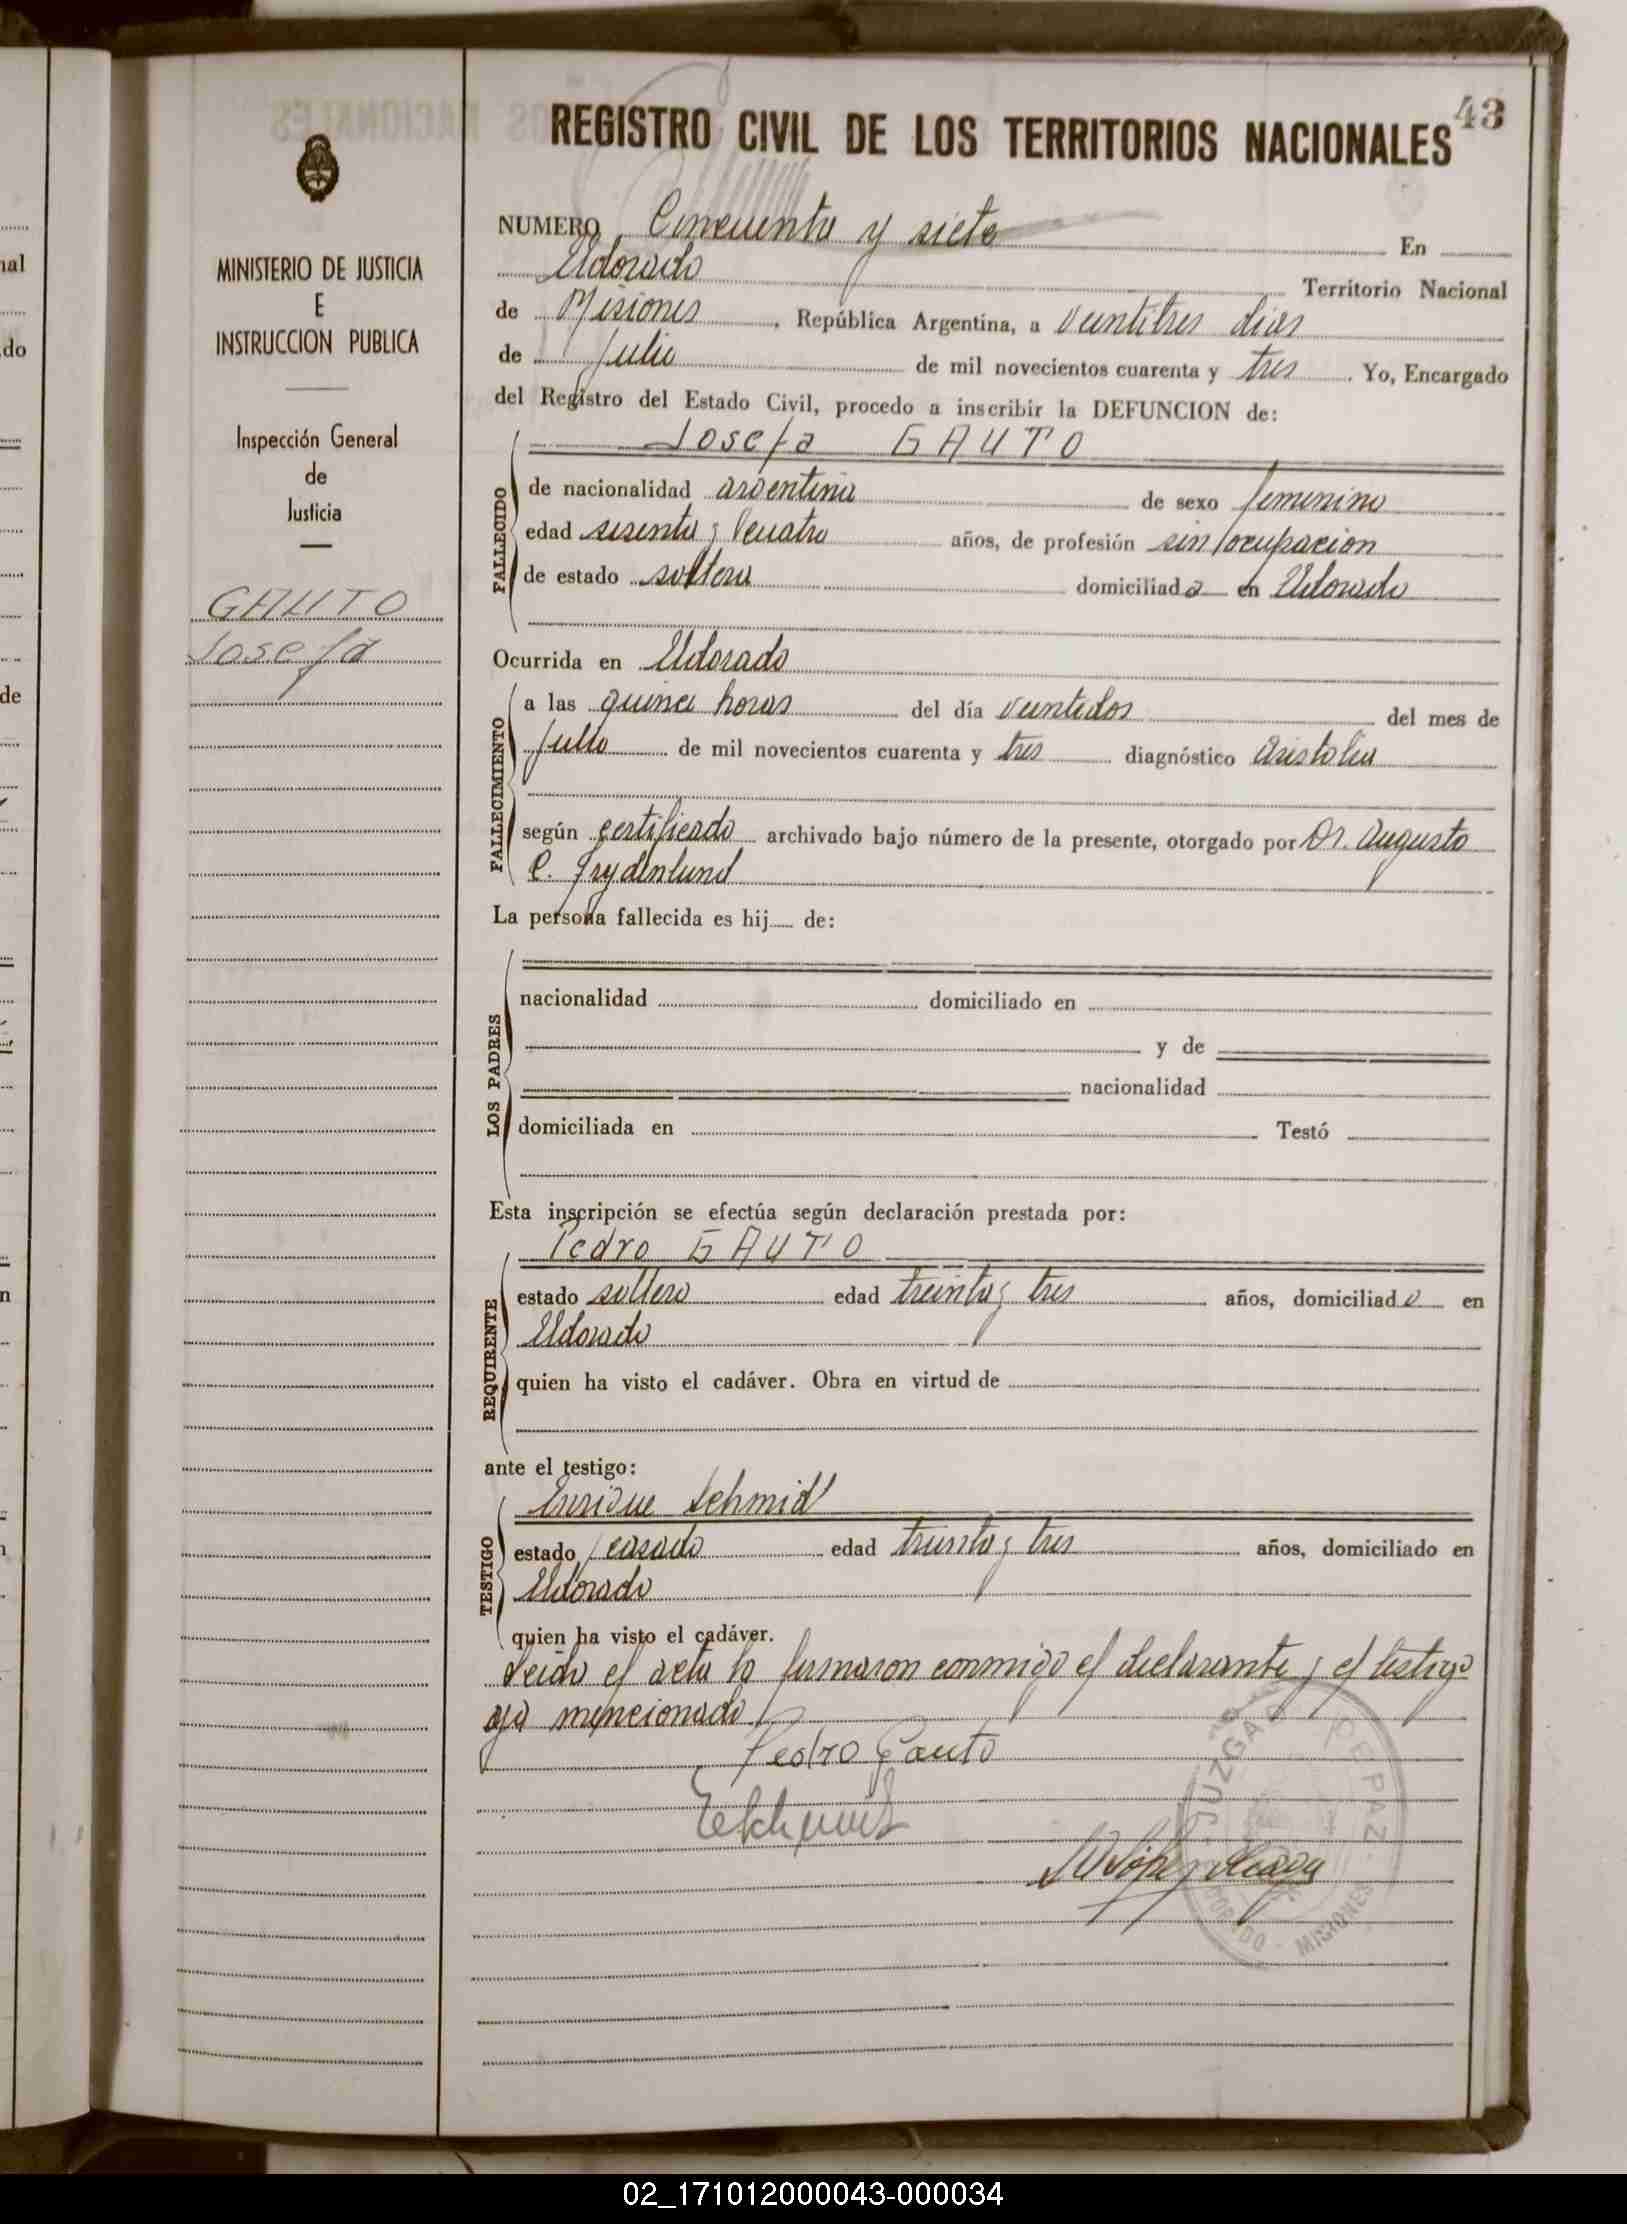 43
REGISTRO CIVIL DE LOS TERRITORIOS NACIONALES
MINISTERIO DE JUSTICIA
E
INSTRUCCION PUBLICA
Inspección General
de
Justicia
GAUTO
Josefa
NUMERO Cincuenta y siete En
Eldorado Territorio Nacional
de Misiones, República Argentina, a veintitres dias
de Julio de mil novecientos cuarenta y tres. Yo, Encargado
del Registro del Estado Civil, procedo a inscribir la DEFUNCION de:
Josefa GAUTO
FALLECIDO
de nacionalidad argentina de sexo femenino
edad sesenta y cuatro años, de profesión sin ocupacion
de estado soltera domiciliada en Eldorado
Ocurrida en Eldorado
FALLECIMIENTO
a las quince horas del día veintidos del mes de
Julio de mil novecientos cuarenta y tres diagnóstico asistolia
según certificado archivado bajo número de la presente, otorgado por Dr. Augusto
C. Frydenlund
La persona fallecida es hij de:
LOS PADRES
nacionalidad domiciliado en
y de
nacionalidad
domiciliada en Testó
Esta inscripción se efectúa según declaración prestada por:
Pedro GAUTO
REQUIRENTE
estado soltero edad treinta y tres años, domiciliado en
Eldorado
quien ha visto el cadáver. Obra en virtud de
ante el testigo:
Enrique Schmid
TESTIGO
estado casado edad treinta y tres años, domiciliado en
Eldorado
quien ha visto el cadáver.
Leido el acta la firmaron conmigo el declarante y el testigo
ya mencionado
Pedro Gauto
JUZGADO DE PAZ
ELDORADO - MISIONES
02_171012000043-000034